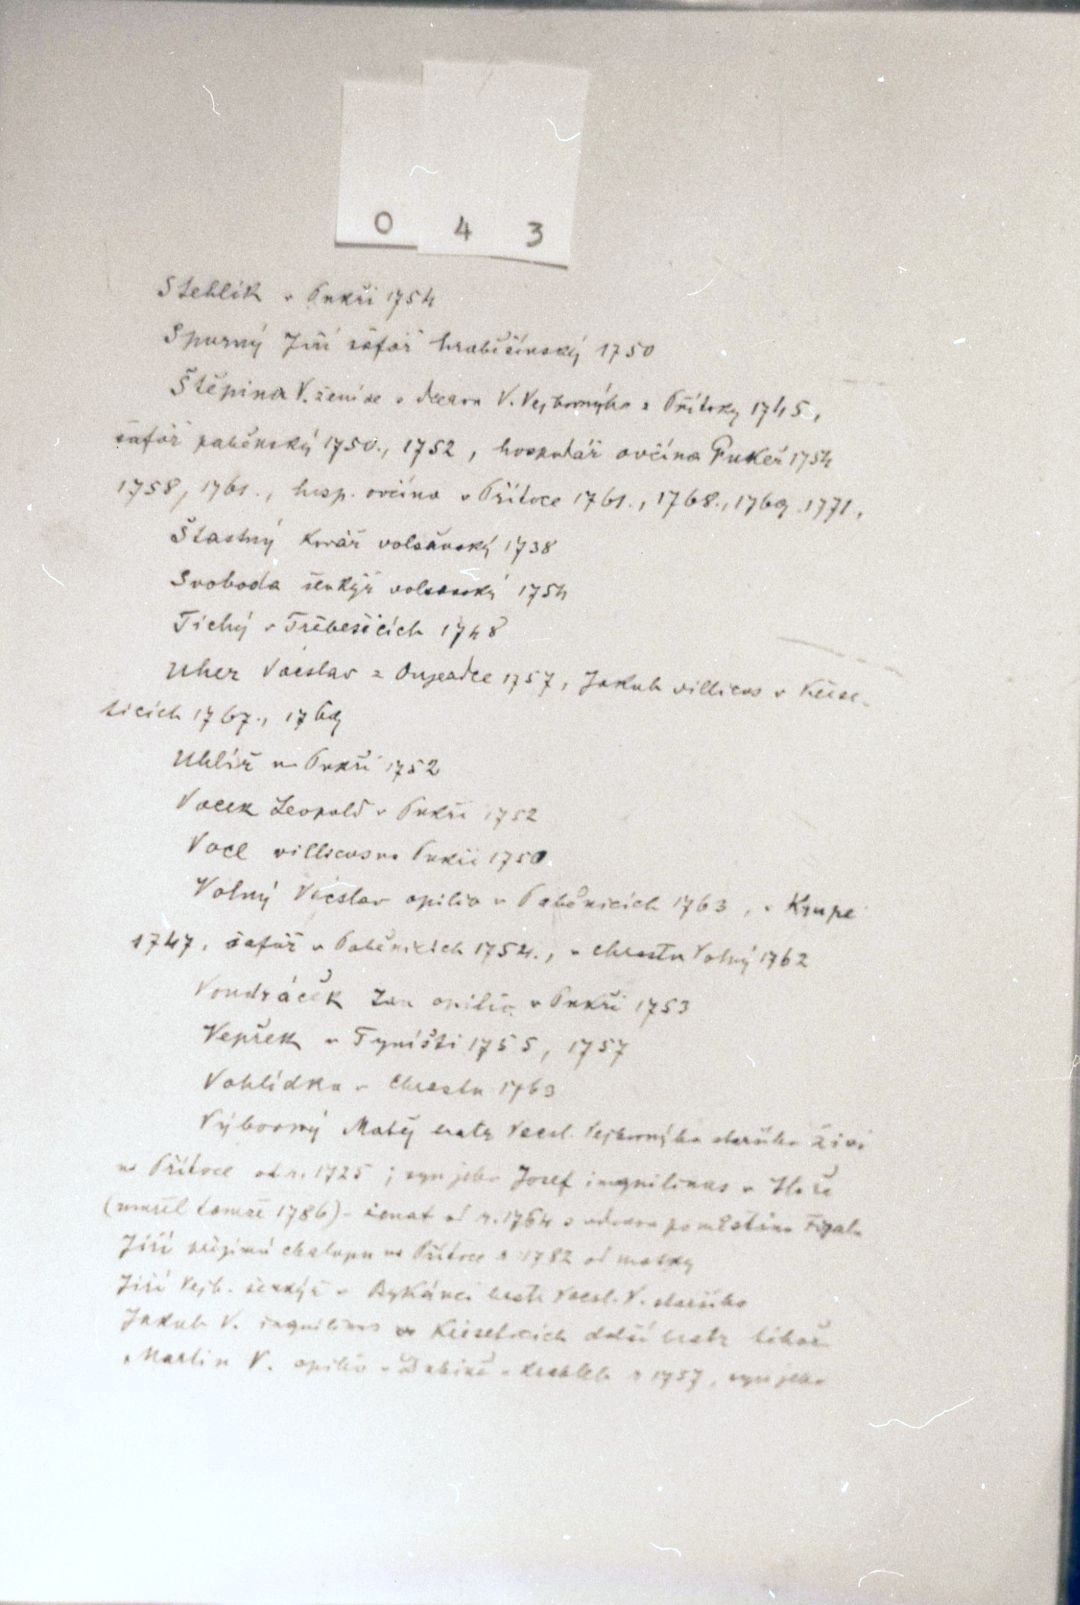 0 4 3
Stehlík v Pukři 1754
Spurný Jiří šafář hraběšínský 1750
Štěpina V. ženil se s dcerou V. Vejborného z Přítoky 1745,
šafář paběnský 1750., 1752, hospodář ovčína Pukeř 1754
1758, 1761., hosp. ovčína v Přítoce 1761., 1768., 1769 1771,
Štastný kovář volšanský 1738
Svoboda šenkýř volšanský 1754
Tichý v Třebešicích 1748
Uher Václav z Oujezdce 1757, Jakub villicus v Křese-
ticích 1767., 1769
Uhlíř v Pukři 1752
Vacek Leopold v Pukři 1752
Vocl villicus v Pukři 1750
Volný Václav opilio v Paběnicích 1763, v Krupé
1747, šafář v Paběnicích 1754., v Chrastu Volný 1762
Vondráček Jan opilio v Pukři 1753
Vepřek v Týništi 1755, 1757
Vohlídka v Chrastu 1763
Výborný Matěj bratr Vácsl. Vejborného staršího živ
v Přítoce od r. 1725; syn jeho Josef inquilinus v
(umřel tamže 1786) - ženat od r. 1764 s vdovou po
Jiří přijímá chalupu v Přítoce r 1782 od matky
Jiří Vejb. šenkýř v Bykánci bratr Vácsl. V. staršího
Jakub V. inquilinus v Křeseticích další bratr téhož
Martin V. opilio v r 1757, syn jeho